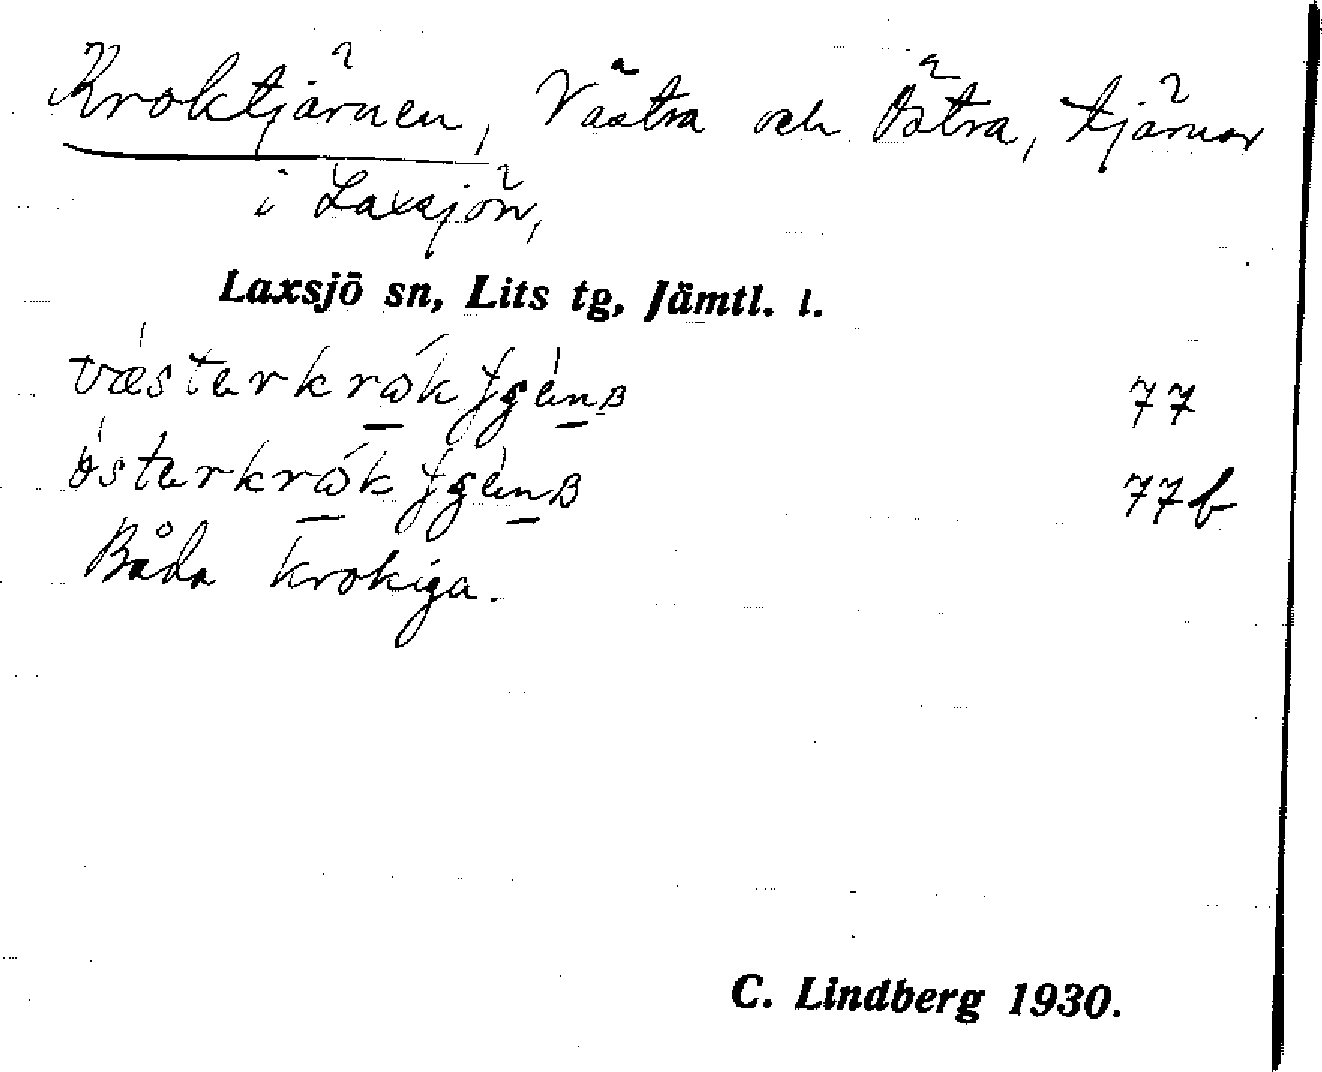 Kroktjärnen, Västra och Östra, tjärnar
i Laxsjön,
Laxsjö sn, Lits tg, Jämtl. l.
77
77b
Båda krokiga.
C. Lindberg 1930.